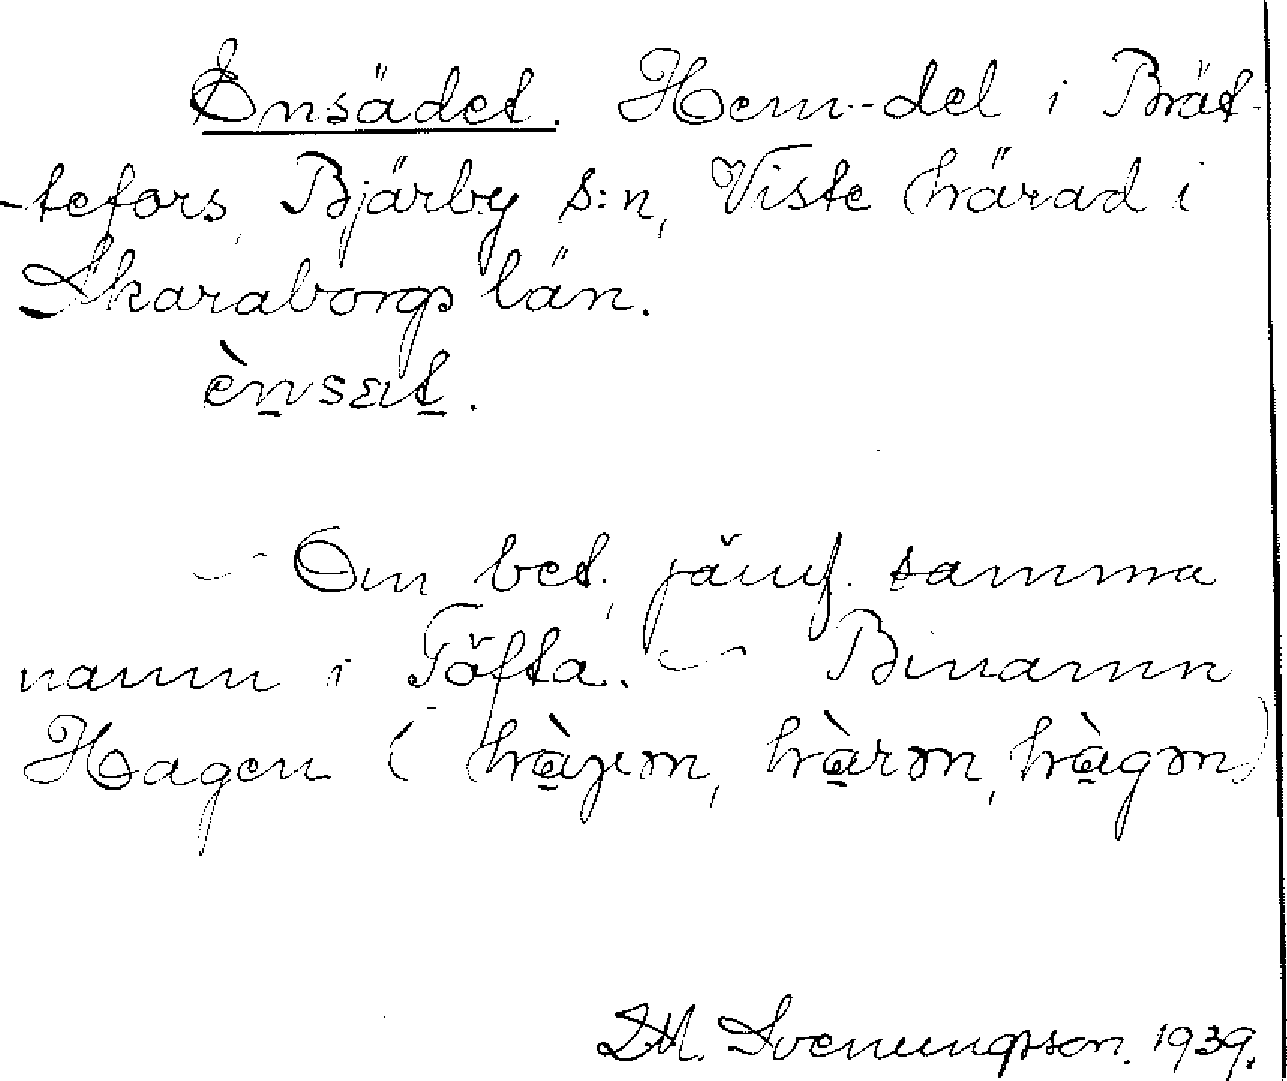 Ensädet. Hem.-del i Brät-
-tefors, Bjärby s:n, Viste härad i
Skaraborgs län.
ènsɛt.
– Om bet., jämf. samma
namn i Töfta. – Binamn
Hagen (
Svenungsson. 1939.